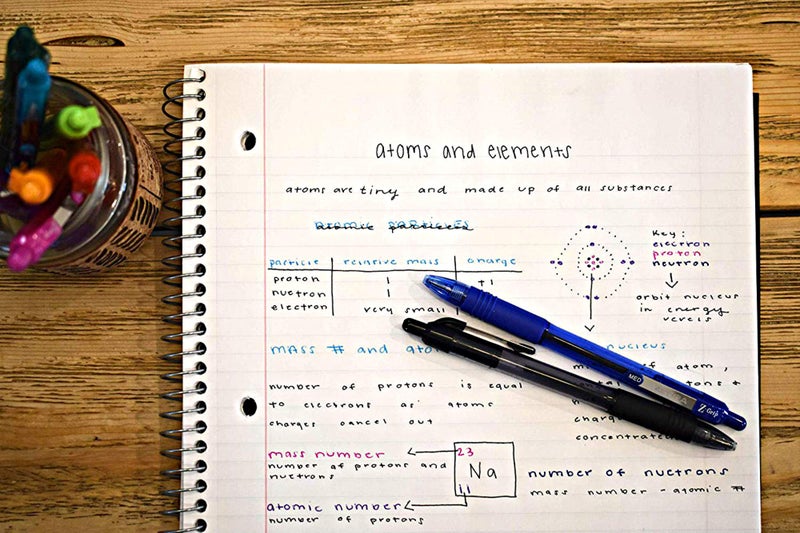 atoms and elements
atoms are tiny and made up of all substances
atomic particles
particle relative mass charge
proton 1 +1
nuetron 1
electron very small
Key:
electron
proton
neutron
orbit nucleus
in energy
mass # and
nucleus
atom,
number of protons is equal
to electrons as atoms
charges cancel out
concentrated
mass number
number of protons and
nuetrons
23
Na
11
number of nuetrons
mass number - atomic #
atomic number
number of protons
MED
Z Grip